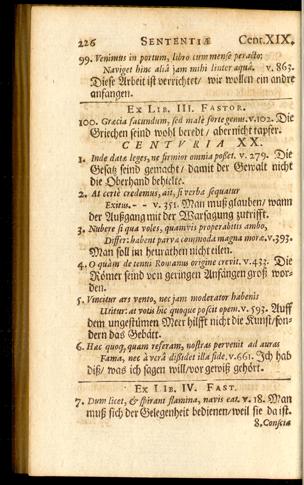 226 SENTENTIÆ Cent.XIX.
99. Venimus in portum, libro cum mense peracto:
Naviget hinc aliâ jam mihi linter aquâ. v. 863.
Diese Arbeit ist verrichtet/ wir wollen ein andre
anfangen.
EX LIB. III. FASTOR.
100. Græcia facundum, sed malè forte genus. v.102. Die
Griechen seind wohl beredt/ aber nicht tapfer.
CENTURIA XX.
1. Inde datæ leges, ne firmior omnia posset. v. 279. Die
Gesatz seind gemacht/ damit der Gewalt nicht
die Oberhand behielte.
2. At certè credemus, ait, si verba sequatur
Exitus. - - v. 351. Man muß glauben/ wann
der Außgang mit der Warsagung zutrifft.
3. Nubere si qua voles, quamvis properabitis ambo,
Differ: habent parvæ commoda magna moræ. v.393.
Man soll im heurathen nicht eilen.
4. O quàm de tenui Romanus origine crevit. v. 433. Die
Römer seind von geringen Anfängen groß wor-
den.
5. Vincitur ars vento, nec jam moderator habenis
Utitur: at votis hic quoque poscit opem. v. 593. Auff
dem ungestümen Meer hilfft nicht die Kunst/ son-
dern das Gebätt.
6. Hæc quoq, quam referam, nostras pervenit ad aures
Fama, nec à verâ dissidet illa fide. v. 661. Ich hab
diß/ was ich sagen will/ vor gewiß gehört.
EX LIB. IV. FAST.
7. Dum licet, & spirant flamina, navis eat. v. 18. Man
muß sich der Gelegenheit bedienen/ weil sie da ist.
8. Conscia